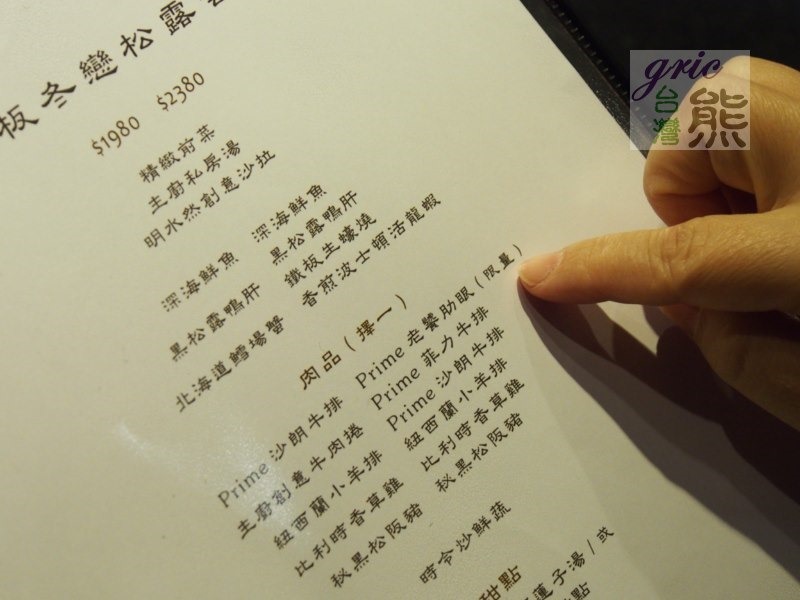 板冬戀松露
$1980 $2380
精緻前菜
主廚私房湯
明水然創意沙拉
深海鮮魚 深海鮮魚
黑松露鴨肝 黑松露鴨肝
北海道鱈場蟹 鐵板生蠔燒
香煎波士頓活龍蝦
肉品(擇一)
Prime 沙朗牛排 Prime 老饕肋眼(限量)
主廚創意牛肉捲 Prime 菲力牛排
紐西蘭小羊排 Prime 沙朗牛排
比利時香草雞 紐西蘭小羊排
秘黑松阪豬 比利時香草雞
秘黑松阪豬
時令炒鮮蔬
甜點
蓮子湯/或
點
gric
台灣
熊